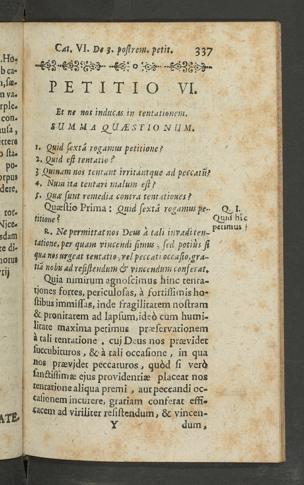 Cat. VI. De 3. postrem. petit. 337
PETITIO VI.
Et ne nos inducas in tentationem.
SUMMA QUÆSTIONUM.
1. Quid sextâ rogamus petitione?
2. Quid est tentatio?
3 Quinam nos tentant irritantque ad peccatū?
4. Num ita tentari malum est?
5. Quæ sunt remedia contra tentationes?
Quæstio Prima: Quid sextâ rogamus pe-
titione?
Q. I.
Quid hîc
petimus?
R. Ne permittat nos Deus à tali invadi ten-
tatione, per quam vincendi simus; sed potiùs si
qua nos urgeat tentatio, vel peccati occasio, gra-
tiā nobis ad resistendum & vincendum conferat.
Quia nimirum agnoscimus hinc tenta-
tiones fortes, periculosas, à fortissimis ho-
stibus immissas, inde fragilitatem nostram
& pronitatem ad lapsum, ideò cum humi-
litate maxima petimus præservationem
à tali tentatione, cui Deus nos prævidet
succubituros, & à tali occasione, in qua
nos prævidet peccaturos, quòd si verò
sanctissimæ ejus providentiæ placeat nos
tentatione aliqua premi, aut peccandi oc-
casionem incurere, gratiam conferat effi-
cacem ad viriliter resistendum, & vincen-
Y dum,